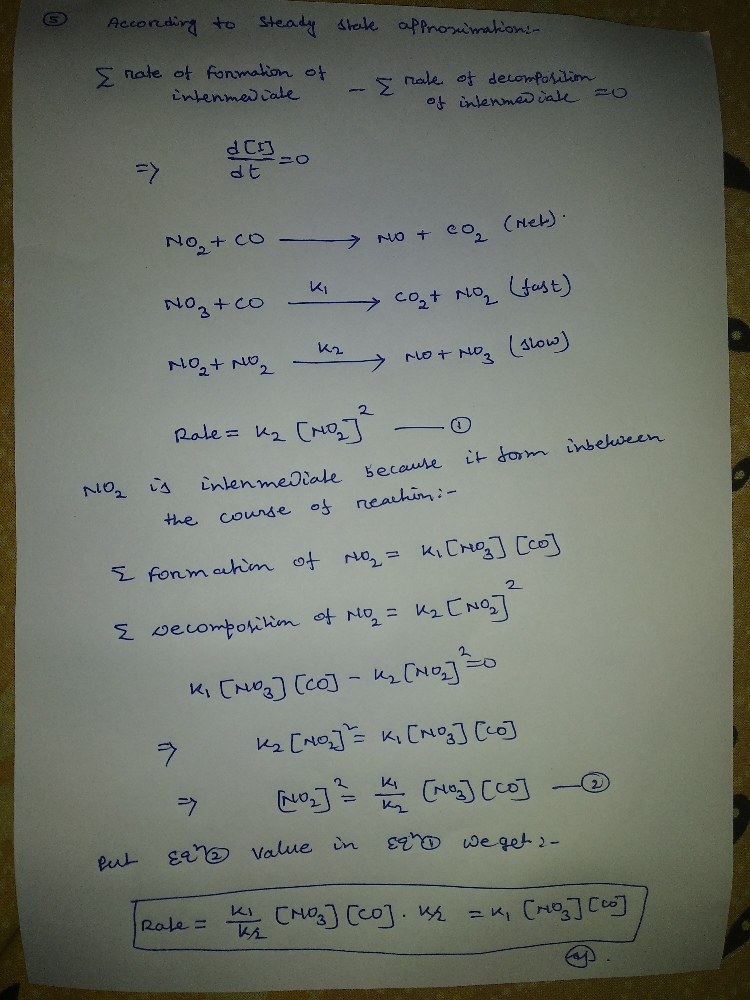 ⑤ According to steady state approximation:-
Σ rate of formation of intermediate − Σ rate of decomposition of intermediate = 0
=> d[I]/dt = 0
NO₂ + CO ⟶ NO + CO₂ (Net).
NO₃ + CO —K₁→ CO₂ + NO₂ (fast)
NO₂ + NO₂ —K₂→ NO + NO₃ (slow)
Rate = K₂ [NO₂]² —— ①
NO₂ is intermediate because it form inbetween
the course of reaction:-
Σ formation of NO₂ = K₁[NO₃] [CO]
Σ Decomposition of NO₂ = K₂[NO₂]²
K₁ [NO₃] [CO] − K₂ [NO₂]² = 0
=> K₂ [NO₂]² = K₁ [NO₃] [CO]
=> [NO₂]² = K₁/K₂ [NO₃] [CO] —②
Put Eqⁿ② value in Eqⁿ① we get :-
Rate = K₁/K₂ [NO₃] [CO] . K₂ = K₁ [NO₃] [CO]